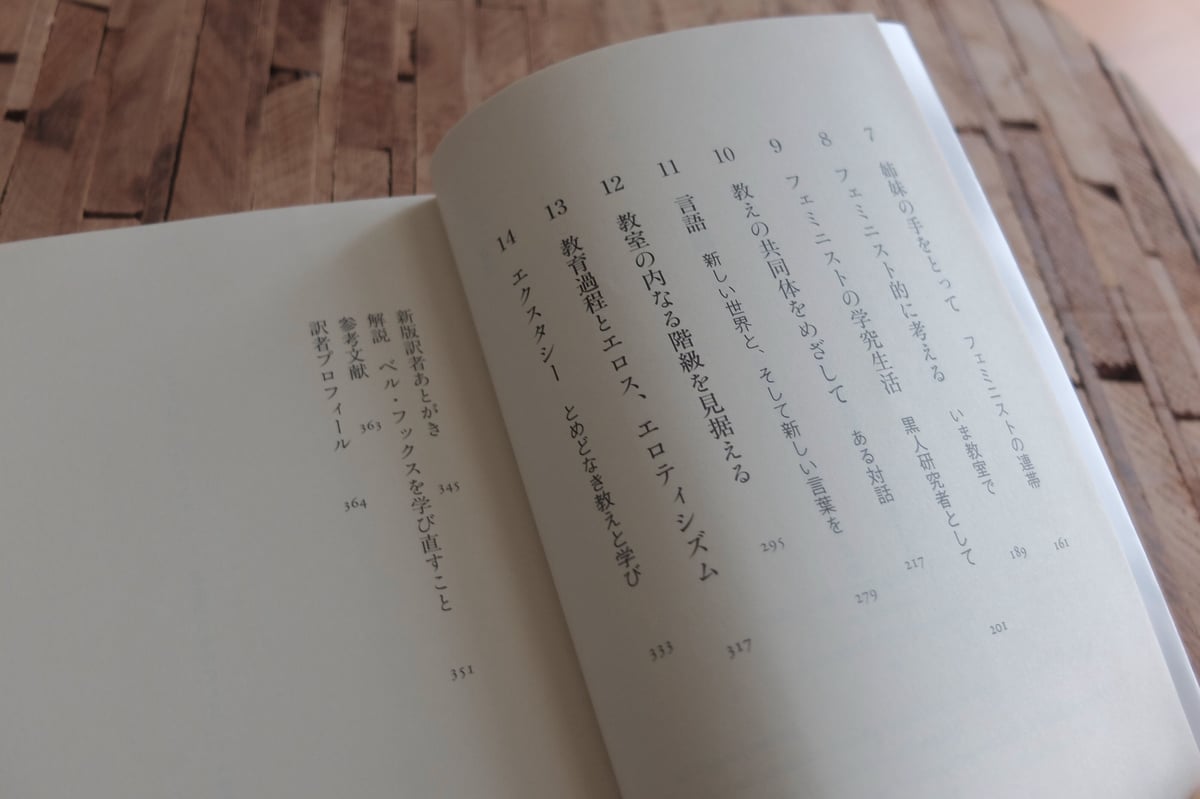 7 姉妹の手をとって フェミニストの連帯 161
8 フェミニスト的に考える いま教室で 189
9 フェミニストの学究生活 黒人研究者として 201
10 教えの共同体をめざして ある対話 217
11 言語 新しい世界と、そして新しい言葉を 279
12 教室の内なる階級を見据える 295
13 教育過程とエロス、エロティシズム 317
14 エクスタシー とめどなき教えと学び 333
新版訳者あとがき 345
解説 ベル・フックスを学び直すこと 351
参考文献 363
訳者プロフィール 364